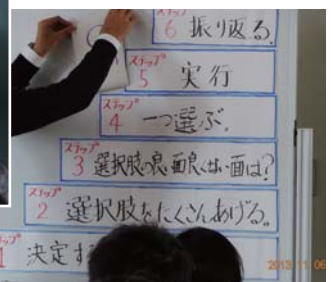 ステップ
6 振り返る。
ステップ
5 実行
ステップ
4 一つ選ぶ。
ステップ
3 選択肢の良い面良くない面は?
ステップ
2 選択肢をたくさんあげる。
ステップ
1 決定す
2013 11 06